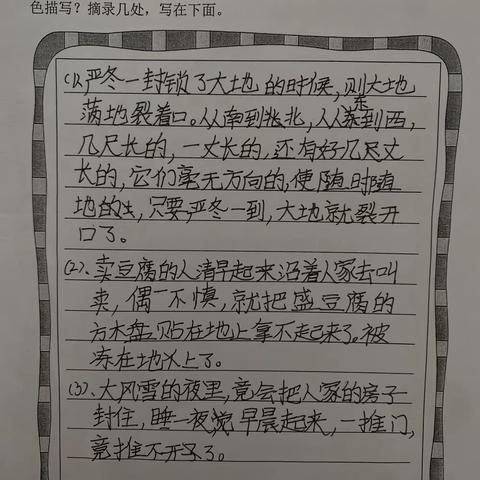 色描写？摘录几处，写在下面。
(1)、严冬一封锁了大地的时候，则大地
满地裂着口。从南到北，从东到西，
几尺长的，一丈长的，还有好几尺丈
长的，它们毫无方向的，使随时随
地的，只要严冬一到，大地就裂开
口了。
(2)、卖豆腐的人清早起来沿着人家去叫
卖，偶一不慎，就把盛豆腐的
方木盘贴在地上拿不起来了。被
冻在地上了。
(3)、大风雪的夜里，竟会把人家的房子
封住，睡一夜，觉早晨起来，一推门，
竟推不开了。